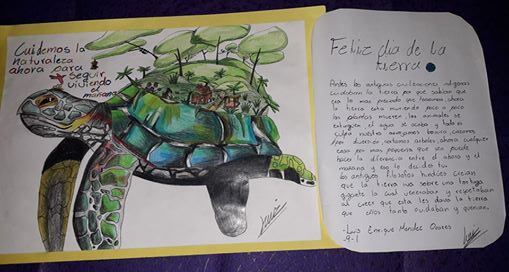 Cuidemos la
naturaleza
ahora para
seguir
viviendo
el
mañana
Feliz dia de la
tierra
Antes las antiguas civilizaciones indigenas
cuidaban la tierra por que sabian que
era lo mas preciado que tenemos, ahora
la tierra esta muriendo poco a poco
las plantas mueren, los animales se
extinguen el agua se acaba y todo es
culpa nuestra navegamos basura cazamos
por diversión, cortamos arboles ahora cualquier
cosa por mas pequeña que sea puede
hacer la diferencia entre el ahora y el
mañana y eso lo decides tu
los antiguos filosofos hindúes creian
que la tierra iva sobre una tortuga
gigante la cual veneraban y respetaban
al creer que esta les daba la tierra
que ellos tanto cuidaban y querian.
-Luis Enrique Mendez Osores
-9-1